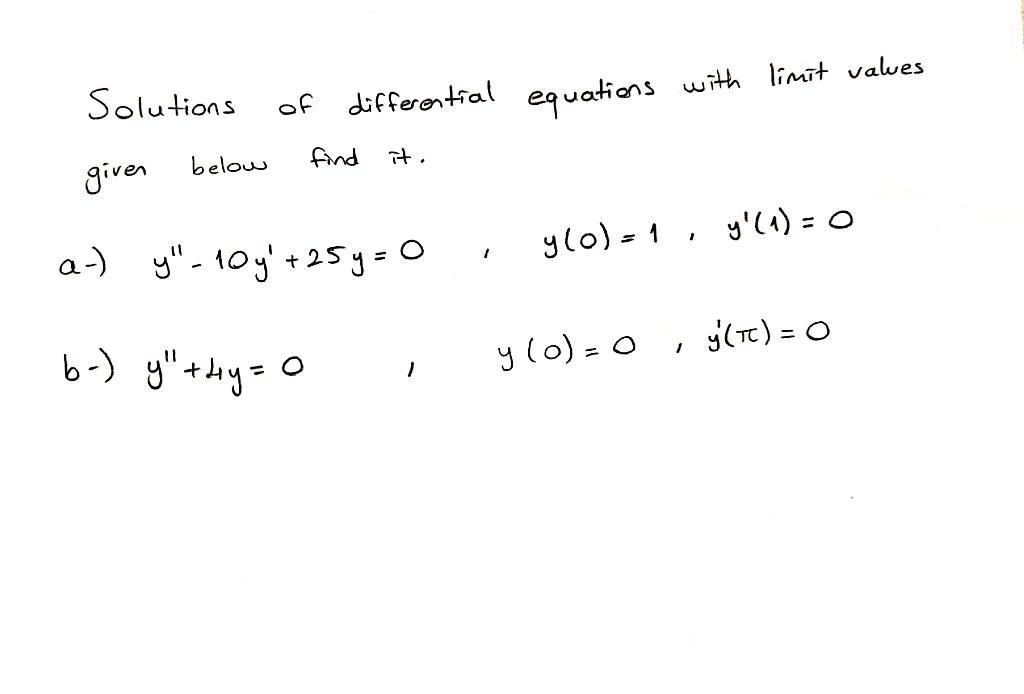 Solutions of differential equations with limit values
given below find it.
a-) y'' - 10y' + 25y = 0 , y(0) = 1 , y'(1) = 0
b-) y'' + 4y = 0 , y(0) = 0 , y'(π) = 0